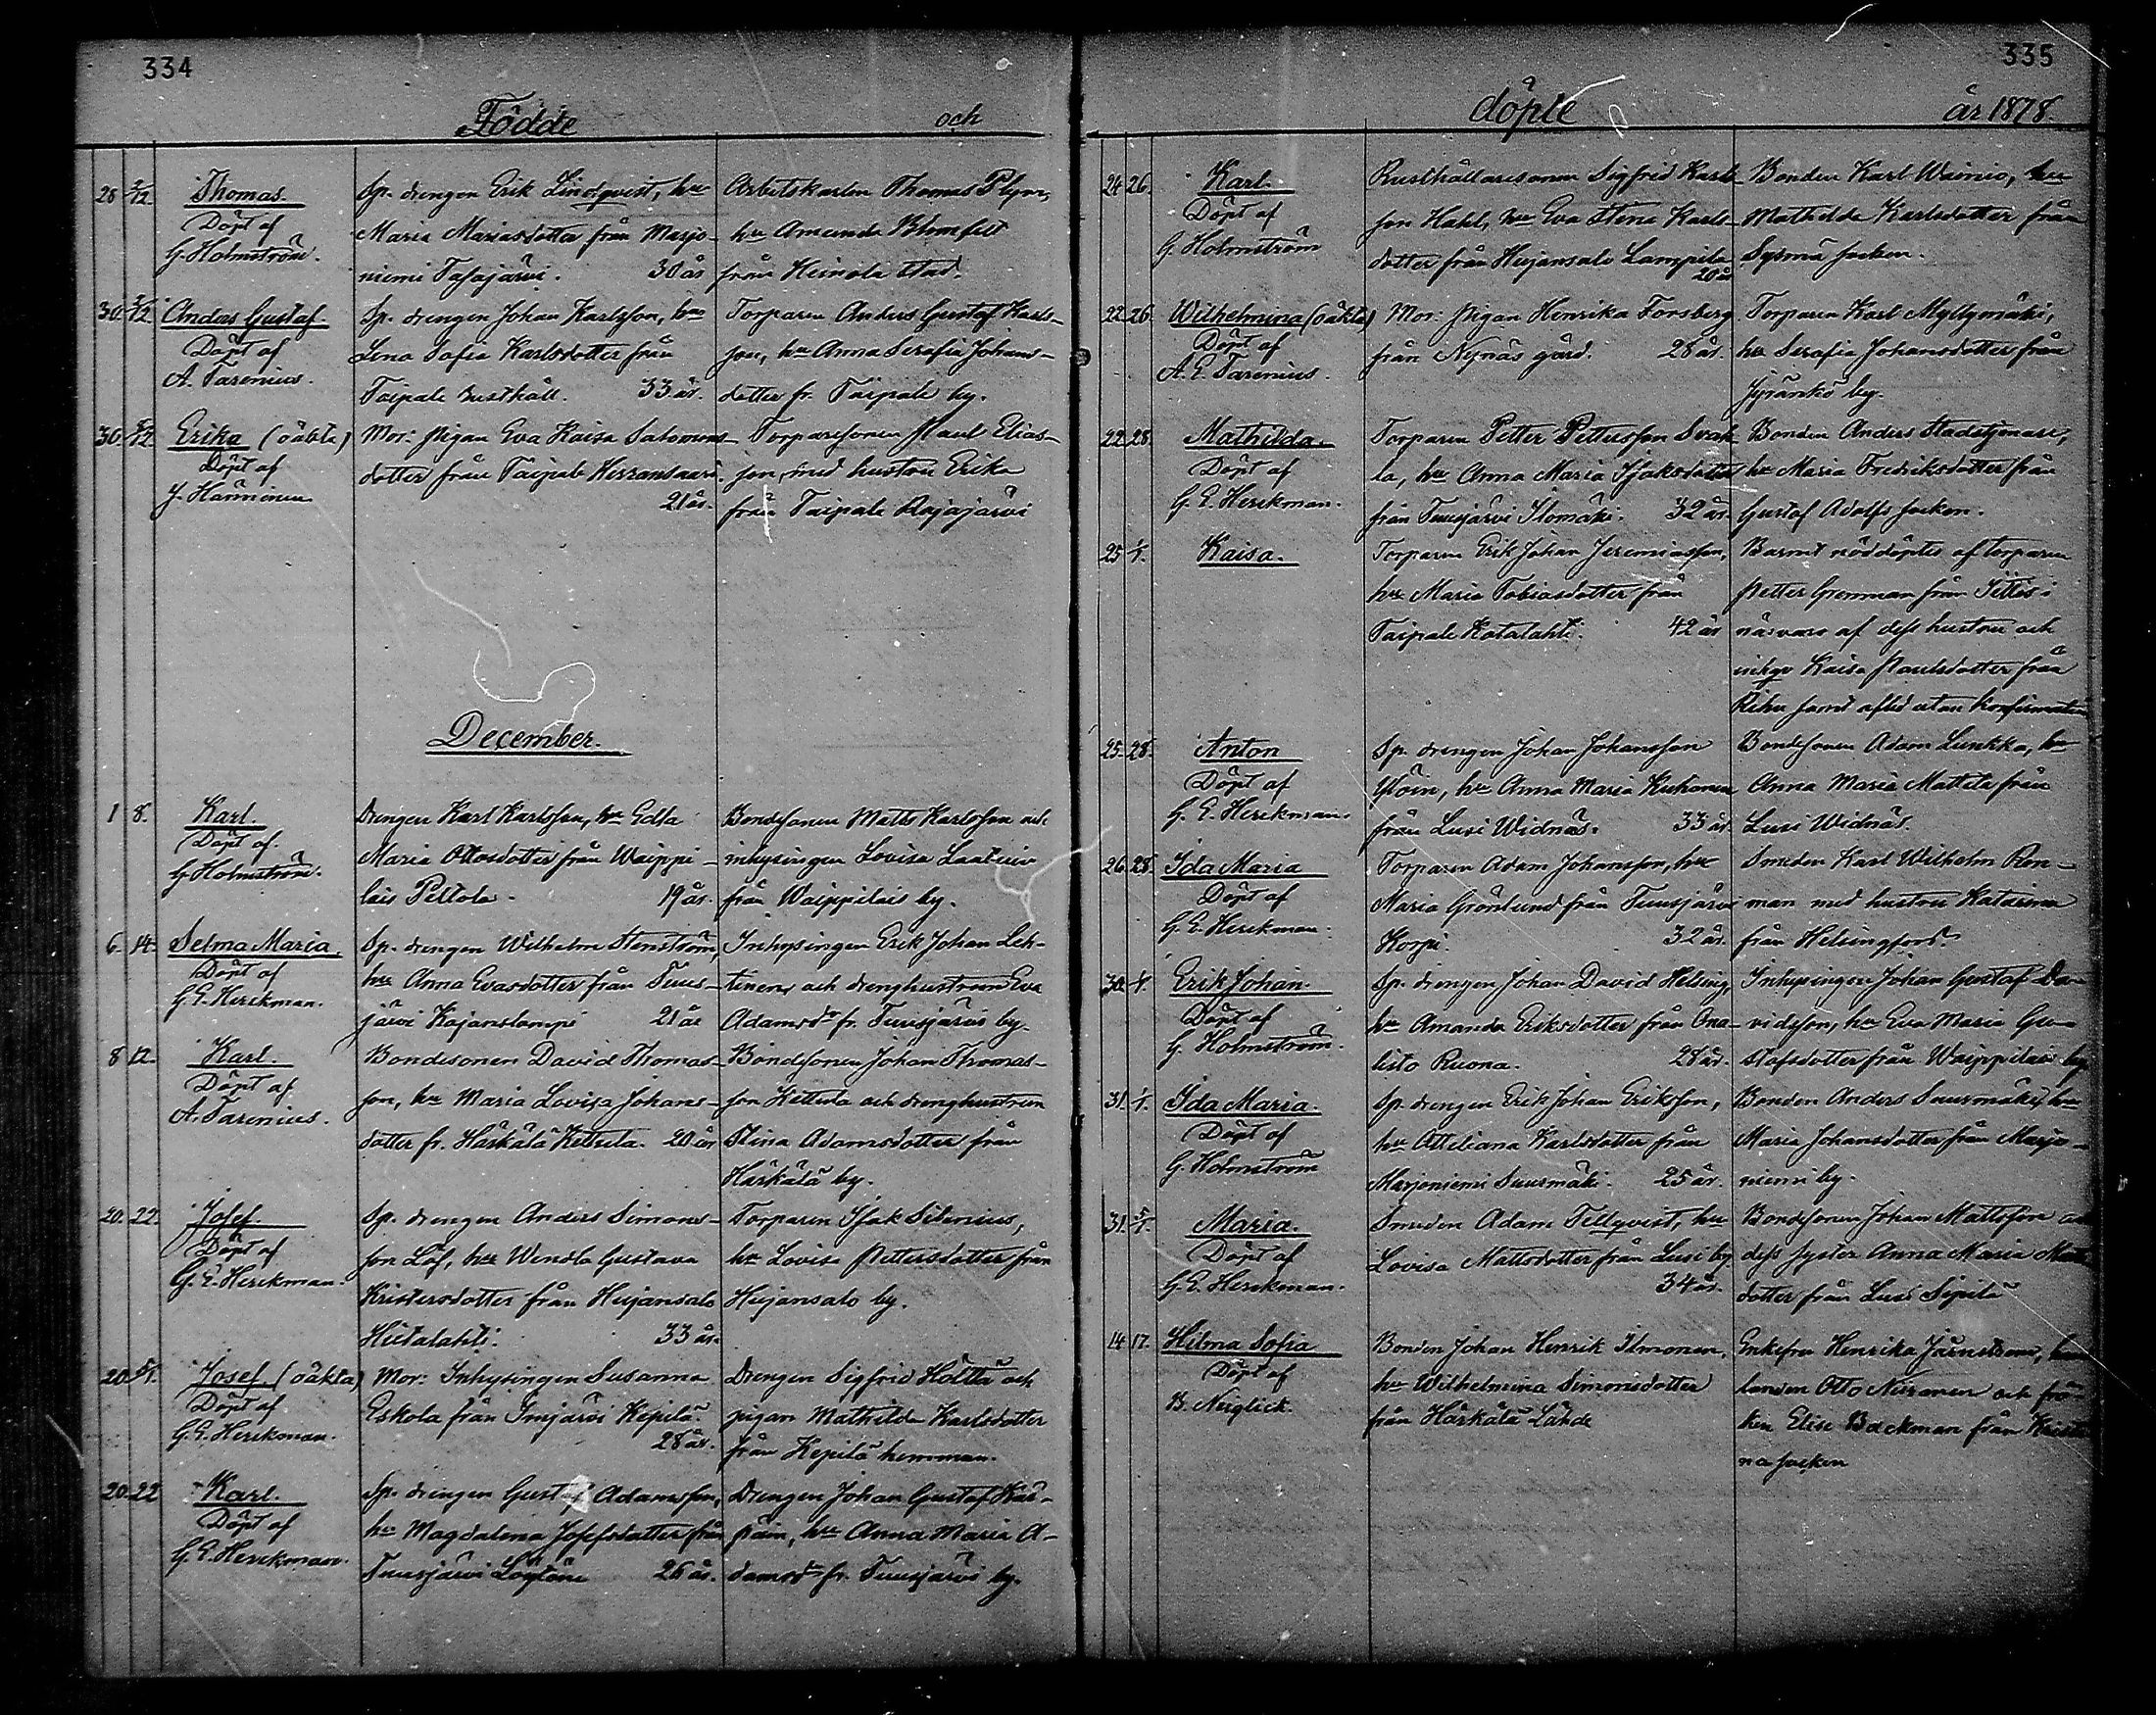 334
Födde och
28 2/12 Thomas. Sp. drengen Erik Lindqvist, hu Arbetskarlen Thomas Plym,
Döpt af Maria Mariasdotter från Marjo- hu Amanda Blomfelt
G. Holmström. niemi Tasajärvi. 30 år från Heinola stad.
30. /12 Anders Gustaf. Sp. drengen Johan Karlsson, hu Torparen Anders Gustaf Karls-
Döpt af Lena Sofia Karlsdotter från son, hu Anna Serafia Johans-
A. Tarenius. Taipale rusthåll. 33 år. dotter fr. Taipale by.
30. /12 Erika (oäkta) Mor: pigan Eva Kaisa Salomons- Torparesonen Paul Elias-
Döpt af dotter från Taipale Herransaari. son, med hustru Erika
J. Hänninen 21 år. från Taipale Rajajärvi
December.
1 8. Karl. Drengen Karl Karlsson, hu Edla Bondesonen Matts Karlsson och
Döpt af. Maria Ottosdotter från Waippi- inhysingen Lovisa
G Holmström. lais Peltola. 19 år. från Waippilais by.
6. 14. Selma Maria. Sp. drengen Wilhelm Stenström, Inhysingen Erik Johan Leh-
Döpt af hu Anna Evasdotter från Tuus- tinen, och drenghustrun Eva
G. E. Herckman. järvi Kajanslampi 21 år Adamsdr fr. Tuusjärvi by.
8 12. Karl. Bondesonen David Thomas- Bondesonen Johan Thomas-
Döpt af son, hu Maria Lovisa Johans- son Kettula och drenghustrun
A. Tarenius. dotter fr. Härkälä Kettula. 20 år Stina Adamsdotter från
Härkälä by.
20. 22. Josef. Sp. drengen Anders Simons- Torparen Isak Silenius,
Döpt af son Löf, hu Wendla Gustava hu Lovisa Pettersdotter från
G. E. Herckman. Kristersdotter från Hujansalo Hujansalo by.
Hietalahti. 33 år.
20. /1. Josef (oäkta) Mor: Inhysingen Susanna Drengen Sigfrid Hölttä och
Döpt af Eskola från Imjärvi Kepilä. pigan Mathilda Karlsdotter
G. E. Herckman. 28 år. från Kepilä hemman.
20. 22 Karl. Sp. drengen Gustaf Adamsson, Drengen Johan Gustaf Kar-
Döpt af hu Magdalena Josefsdotter från päin, hu Anna Maria A-
G. E. Herckman. Tuusjärvi Löytänä 26 år. damsdr fr. Tuusjärvi by.
335
döpte år 1878.
24 26. Karl. Rusthållaresonen Sigfrid Karls- Bonden Karl Wainio, hu
Döpt af son Hahl, hu Eva Stina Karls- Mathilda Karlsdotter från
G. Holmström dotter från Hujansalo Lampila Sysmä socken.
20 år
22. 26. Wilhelmina (oäkta) Mor: pigan Henrika Forsberg Torparen Karl Myllymäki,
Döpt af från Nynäs gård. 28 år. hu Serafia Johansdotter från
A. E. Tarenius. Jyränkö by.
22. 28. Mathilda. Torparen Petter Pettersson Svak Bonden Anders Stadstjenare,
Döpt af la, hu Anna Maria Isaksdotter hu Maria Fredriksdotter från
G. E. Herckman. från Tuusjärvi Ilomäki. 32 år. Gustaf Adolfs socken.
25 1/1. Kaisa. Torparen Erik Johan Jeremiasson, Barnet nöddöptes af torparen
hu Maria Tobiasdotter från Petter Gronman från Iittis i
Taipale Kotalahti. 42 år närvaro af dess hustru och
Kaisa Paulsdotter från
samt afled utan konfirmation
25. 28. Anton Sp. drengen Johan Johansson Bondesonen Adam Lunkka, hu
Döpt af hu Anna Maria Kuhanen Anna Maria Mattila från
G. E. Herckman. från Lusi Widnäs. 33 år. Lusi Widnäs.
26. 28. Ida Maria Torparen Adam Johansson, hu Smeden Karl Wilhelm Ren-
Döpt af Maria Grönlund från Tuusjärvi man med hustru Katarina
G. E. Herckman. Korpi. 32 år. från Helsingfors.
30. /1. Erik Johan. Sp. drengen Johan David Helsing, Inhysingen Johan Gustaf Da-
Döpt af hu Amanda Eriksdotter från Ona- vidsson, hu Eva Maria Gu-
G. Holmström. listo Ruona. 28 år. stafsdotter från Waippilais by
31. /1. Ida Maria. Sp. drengen Erik Johan Eriksson, Bonden Anders Suurmäki, hu
Döpt af hu Attiliana Karlsdotter från Maria Johansdotter från Marjo-
G. Holmström Marjoniemi Suurmäki. 25 år. niemi by.
31. /1. Maria. Smeden Adam Tellqvist, hu Bondesonen Johan Mattsson
Döpt af Lovisa Mattsdotter från Lusi by. dess syster Anna Maria
G. E. Herckman. 34 år. dotter från Lusi Sipilä
14. 17. Hilma Sofia Bonden Johan Henrik Ilmonen, Enkefru Henrika Järnström,
Döpt af hu Wilhelmina Simonsdotter Otto Nurranen och frö-
B. Neiglick. från Härkälä Lähde ken Elise Backman från
na socken